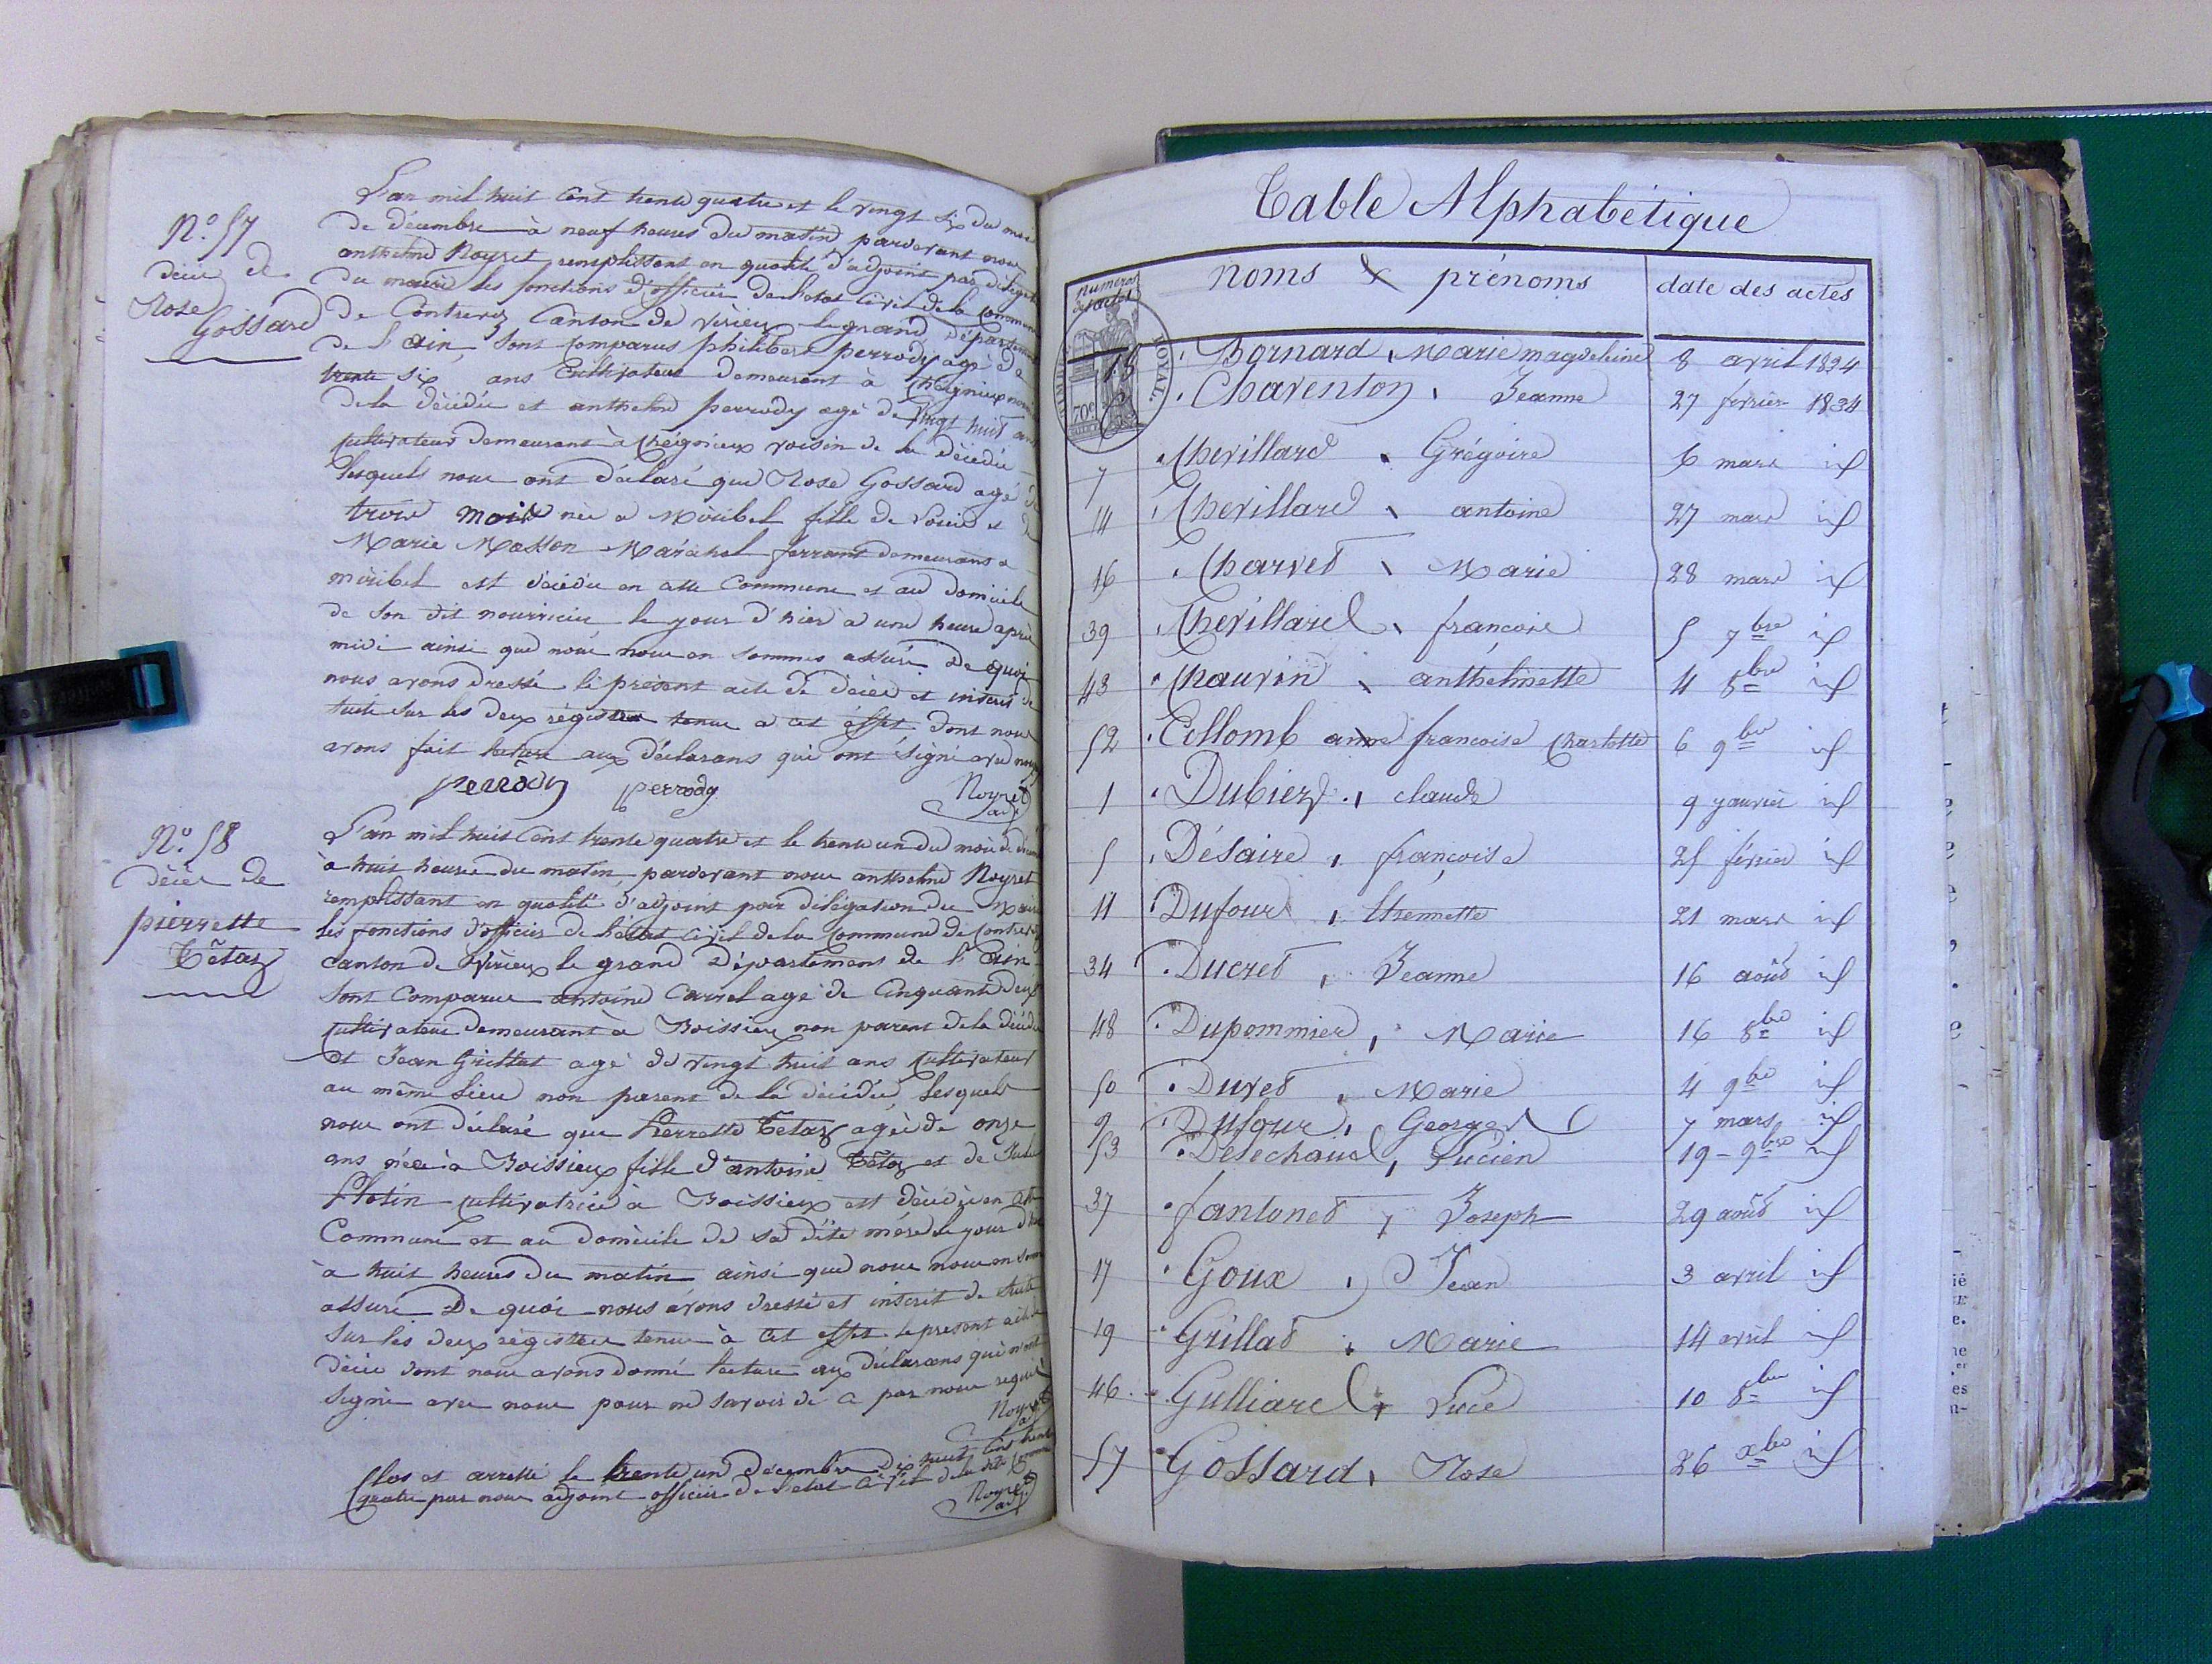 L'an mil huit cent trente quatre et le vingt six du mois
N.o 57
de décembre à neuf heures du matin pardevant nous
décès de
anthelme Noyret remplissant en qualité d'adjoint par délégation
Rose
du maire les fonctions d'officier de l'état civil de la commune
Gossard
de Contrevoz Canton de Virieu le grand, département
de l'ain, sont comparus philibert perrody agé de
trente six ans Cultivateur demeurant à Chégnieux
de la décédée et anthelme perrody agé de vingt huit ans
cultivateur demeurant à Chégnieux voisin de la décédée
lesquels nous ont déclaré que Rose Gossard agé de
trois mois née a Miribel fille de et de
Marie Masson Maréchal ferrant demeurant a
miribel est décédée en cette commune et au domicile
de son dit nourricier le jour d'hier à une heure après
midi ainsi que nous nous en sommes assuré De quoi
nous avons dressé le présent acte de décès et inscrit de
suite sur les deux régistres tenus a cet effet dont nous
avons fait lecture aux déclarans qui ont signé avec nous
perrody perrody Noyret
adj
N.o 58
L'an mil huit cent trente quatre et le trente un du mois de décembre
décès de
à huit heures du matin pardevant nous anthelme Noyret
pierrette
remplissant en qualité d'adjoint par délégation du Maire
Tétaz
les fonctions d'officier de l'état civil de la commune de Contrevoz
canton de Virieux le grand Département de l'ain
sont comparus antoine Carrel agé de cinquante deux
cultivateur demeurant à Boissieu non parent de la décédée
et Jean Grillat agé de vingt huit ans cultivateur
au même lieu non parent de la décédée, lesquels
nous ont déclaré que Pierrette Tetaz agée de onze
ans née à Boissieux fille d'antoine Tétaz et de
cultivatrice à Boissieux est décédée en cette
Commune et au domicile de sa dite mère le jour d'hier
à huit heures du matin ainsi que nous nous en sommes
assuré De quoi nous avons dressé et inscrit de suite
sur les deux régistres tenus à cet effet le présent acte de
décès dont nous avons donné lecture aux déclarans qui n'ont
signé avec nous pour ne savoir de ce par nous requis
Noyret
adj
Clos et arretté le trente un décembre dix huit cent trente
quatre par nous adjoint officier de l'état civil de la dite commune
Noyret
adj
Table Alphabétique
numéros des actes noms & prénoms date des actes
ROYAL
70c
18 Bornard, Marie magdeleine 8 avril 1834
6 Charenton, Jeanne 27 fevrier 1834
7 Chevillard, Grégoire 6 mars id
14 Chevillard, antoine 27 mars id
16 Charvet, Marie 28 mars id
39 Chevillard, françois 5 7bre id
43 Chauvin, anthelmette 4 8bre id
52 Collomb anne françoise Charlotte 6 9bre id
1 Dubiez, claude 9 janvier id
5 Désaire, françoise 25 février id
11 Dufour, 21 mars id
34 Ducret, Jeanne 16 août id
48 Dupommier, Marie 16 8bre id
50 Duret, Marie 4 9bre id
9 Dufour, Georges 7 mars id
53 Deléchaud, Lucien 19 - 9bre id
37 fantonet, Joseph 29 août id
17 Goux, Jean 3 avril id
19 Grillat, Marie 14 avril id
46 Gulliard, Luce 10 8bre id
57 Gossard, Rose 26 Xbre id